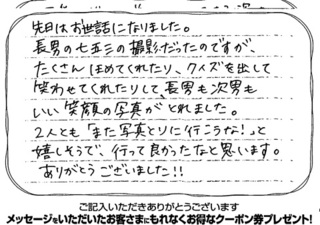 先日はお世話になりました。
長男の七五三の撮影だったのですが、
たくさんほめてくれたり、クイズを出して
笑わせてくれたりして、長男も次男も
いい笑顔の写真がとれました。
2人とも「また写真とりに行こうな!」と
嬉しそうで、行って良かったなと思います。
ありがとうございました!!
ご記入いただきありがとうございます
メッセージをいただいたお客さまにもれなくお得なクーポン券プレゼント!